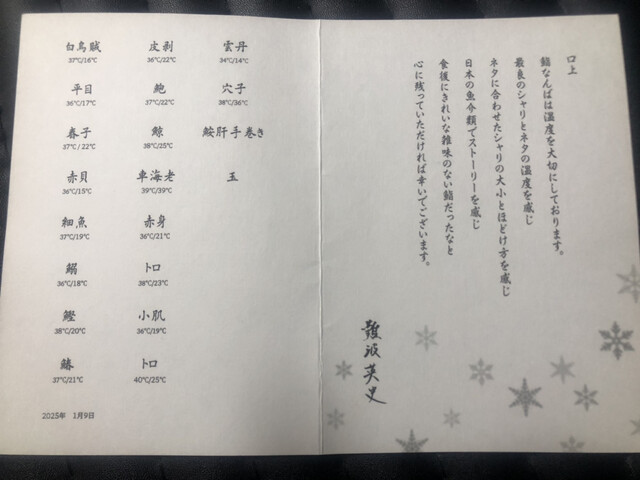 白烏賊
37℃/16℃
平目
36℃/17℃
春子
37℃ / 22℃
赤貝
36℃/15℃
細魚
37℃/19℃
鰯
36℃/18℃
鰹
38℃/20℃
鰆
37℃/21℃
2025年 1月9日
皮剥
36℃/22℃
鮑
37℃/22℃
鯨
38℃/25℃
車海老
39℃/39℃
赤身
36℃/21℃
トロ
38℃/23℃
小肌
36℃/19℃
トロ
40℃/25℃
雲丹
34℃/14℃
穴子
38℃/36℃
鮟肝手巻き
玉
口上
鮨なんばは温度を大切にしております。
最良のシャリとネタの温度を感じ
ネタに合わせたシャリの大小とほどけ方を感じ
日本の魚介類でストーリーを感じ
食後にきれいな雑味のない鮨だったなと
心に残っていただければ幸いでございます。
難波英史